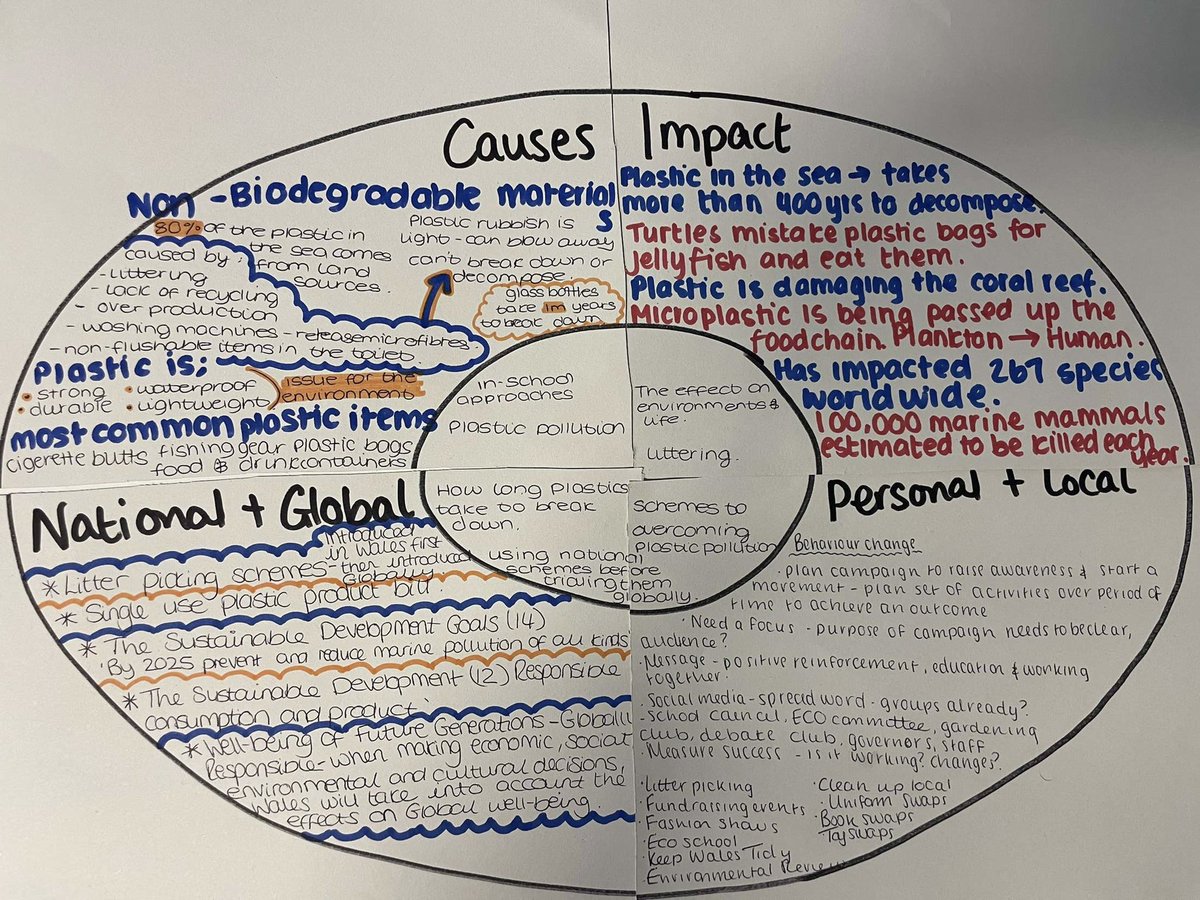 Causes
Non-Biodegradable materials
80% of the plastic in
the sea comes
from land
sources.
caused by:
- littering
- lack of recycling
- over production
- washing machines - release microfibres.
- non-flushable items in the toilet.
Plastic rubbish is
light - can blow away
can't break down or
decompose.
glass bottles
take 1m years
to break down
Plastic is;
• strong • waterproof
• durable • lightweight
issue for the
environment
most common plastic items
cigerette butts fishing gear plastic bags
food & drink containers
Impact
Plastic in the sea → takes
more than 400yrs to decompose.
Turtles mistake plastic bags for
jellyfish and eat them.
Plastic is damaging the coral reef.
Microplastic is being passed up the
foodchain. Plankton → Human.
Has impacted 267 species
worldwide.
100,000 marine mammals
estimated to be killed each
year.
in-school
approaches
Plastic pollution
The effect on
environments &
life.
Littering.
How long plastics
take to break
down.
using national
schemes before
trialing them
globally.
schemes to
overcoming
plastic pollution
National + Global
* Litter picking schemes -
introduced
in Wales first
then introduced
Globally
* Single use plastic product bill.
* The Sustainable Development Goals (14)
• By 2025 prevent and reduce marine pollution of all kinds
* The Sustainable Development (12) Responsible
consumption and product.
* Well-being of Future Generations - Globally
Responsible - when making economic, social,
environmental and cultural decisions,
Wales will take into account the
effects on Global well-being.
Personal + Local
Behaviour change
• plan campaign to raise awareness & start a
movement - plan set of activities over period of
time to achieve an outcome
• Need a focus - purpose of campaign needs to be clear,
audience?
• Message - positive reinforcement, education & working
together.
• Social media - spread word - groups already?
- School council, ECO committee, gardening
club, debate club, governors, staff
• Measure success - is it working? changes?
• Litter picking
• Fundraising events
• Fashion shows
• Eco school
• Keep Wales Tidy
• Environmental Review
• Clean up local
• Uniform swaps
• Book swaps
• Toy swaps